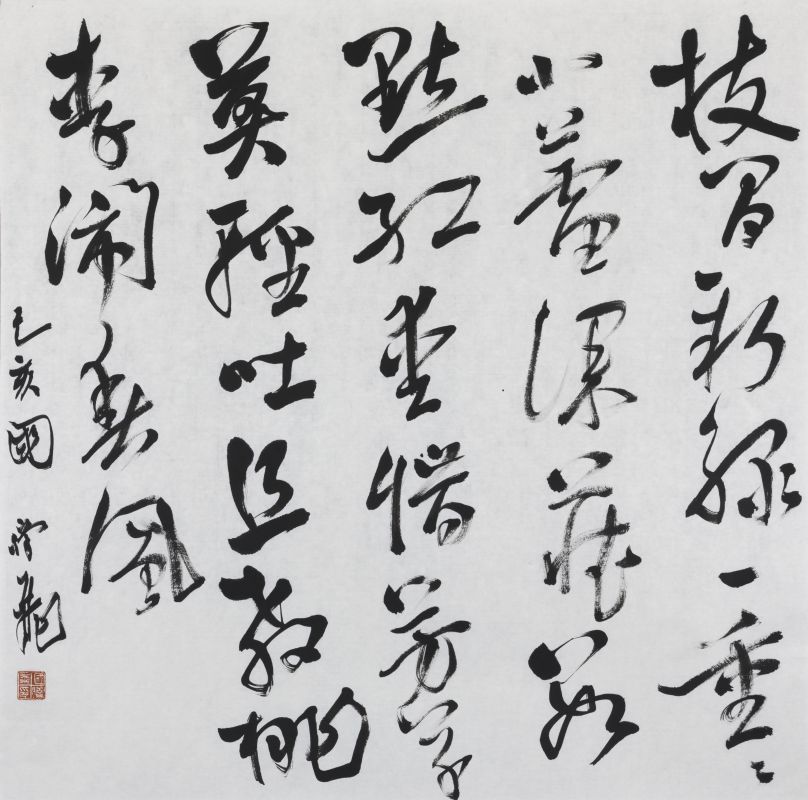 枝間新綠一重々
小蕾深藏数
點紅愛惜芳心
莫輕吐且教桃
李鬧春風
己亥國